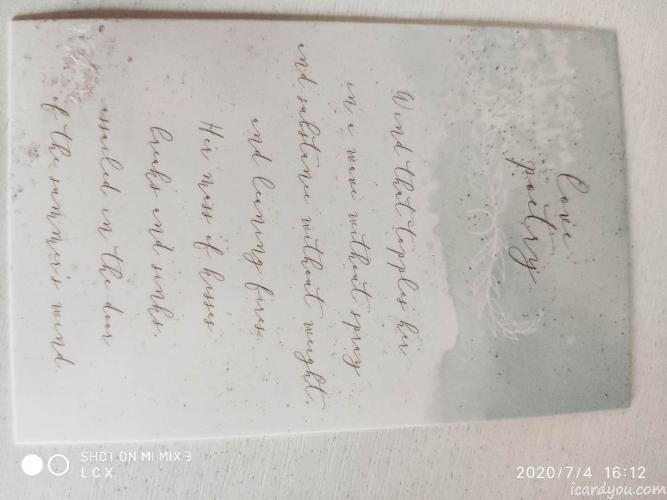 love
poetry
Wind that topples her
in a wave without spray
and substance without weight
and leaning fires.
Her mass of kisses
breaks and sinks.
assailed in the door
of the summer's wind
SHOT ON MI MIX 3
L.C X
2020/7/4 16:12
icardyou.com